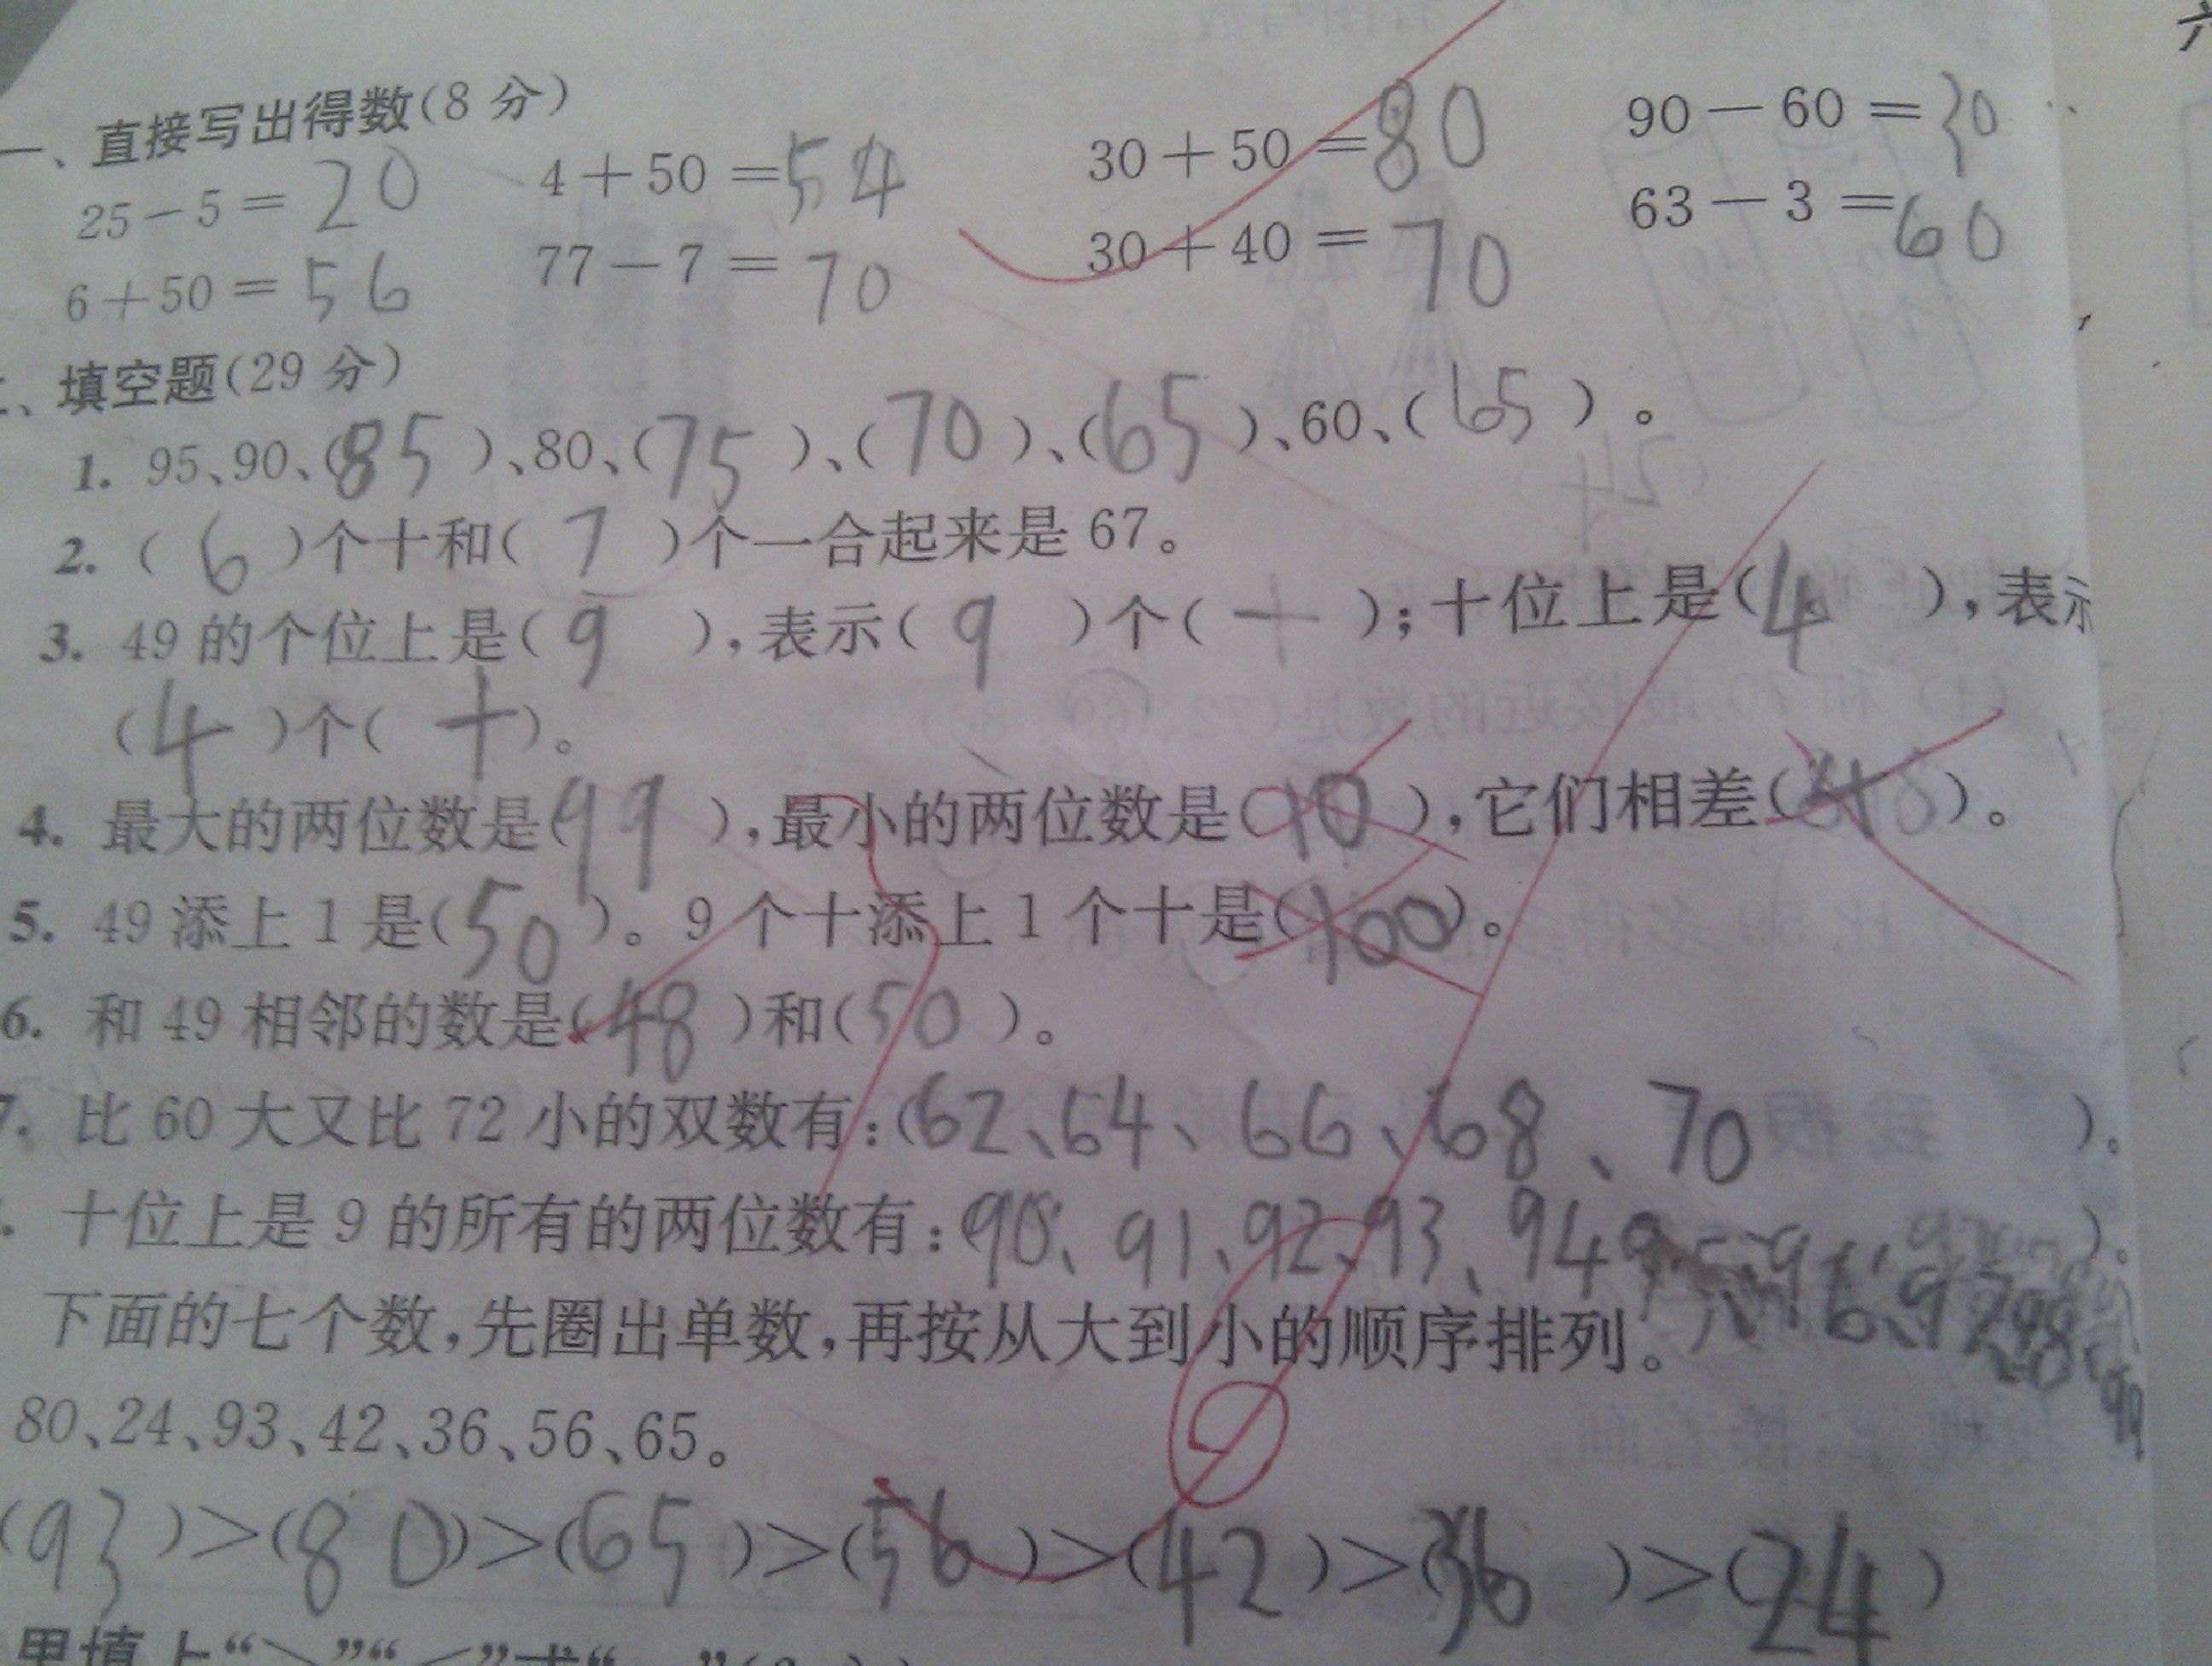 一、直接写出得数(8 分)
25-5=20 4+50=54 30+50=80 90-60=30
6+50=56 77-7=70 30+40=70 63-3=60
填空题(29 分)
1. 95、90、(85)、80、(75)、(70)、(65)、60、(65)。
2. (6)个十和(7)个一合起来是 67。
3. 49 的个位上是(9),表示(9)个(一);十位上是(4),表示
(4)个(十)。
4. 最大的两位数是(99),最小的两位数是(10),它们相差( )。
5. 49 添上 1 是(50)。9 个十添上 1 个十是(100)。
6. 和 49 相邻的数是(48)和(50)。
7. 比 60 大又比 72 小的双数有:(62、64、66、68、70)。
十位上是 9 的所有的两位数有:90、91、92、93、94 96、97 98、99)。
下面的七个数,先圈出单数,再按从大到小的顺序排列。
80、24、93、42、36、56、65。
(93)>(80)>(65)>(56)>(42)>(36)>(24)
里填上“>”“<”或“